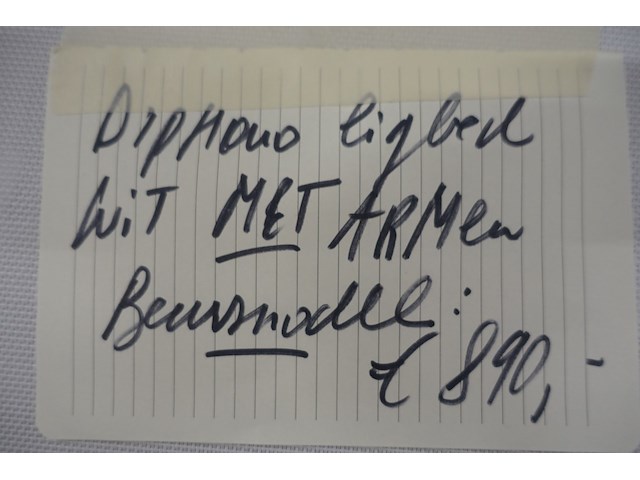 Diphono ligbed
WiT MET ARMen
Beursmodel:
€ 890,-